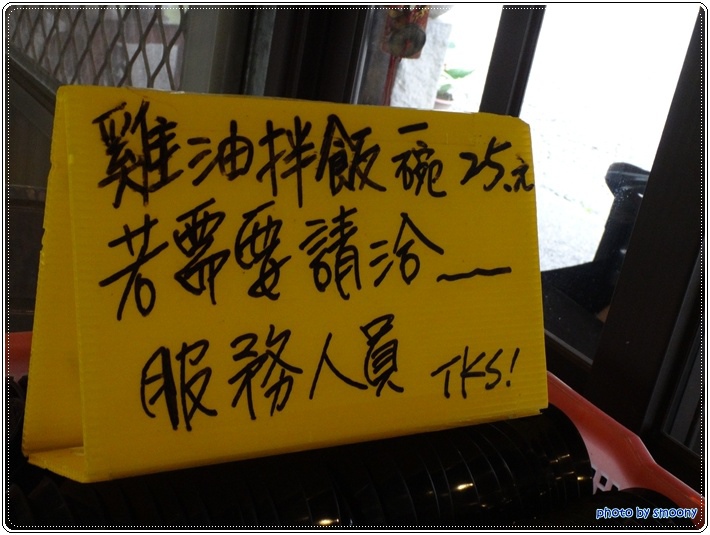 雞油拌飯一碗25元
若需要請洽
服務人員 TKS!
photo by smoony